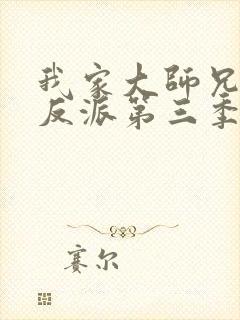 我家大師兄
反派第三季
賽尔